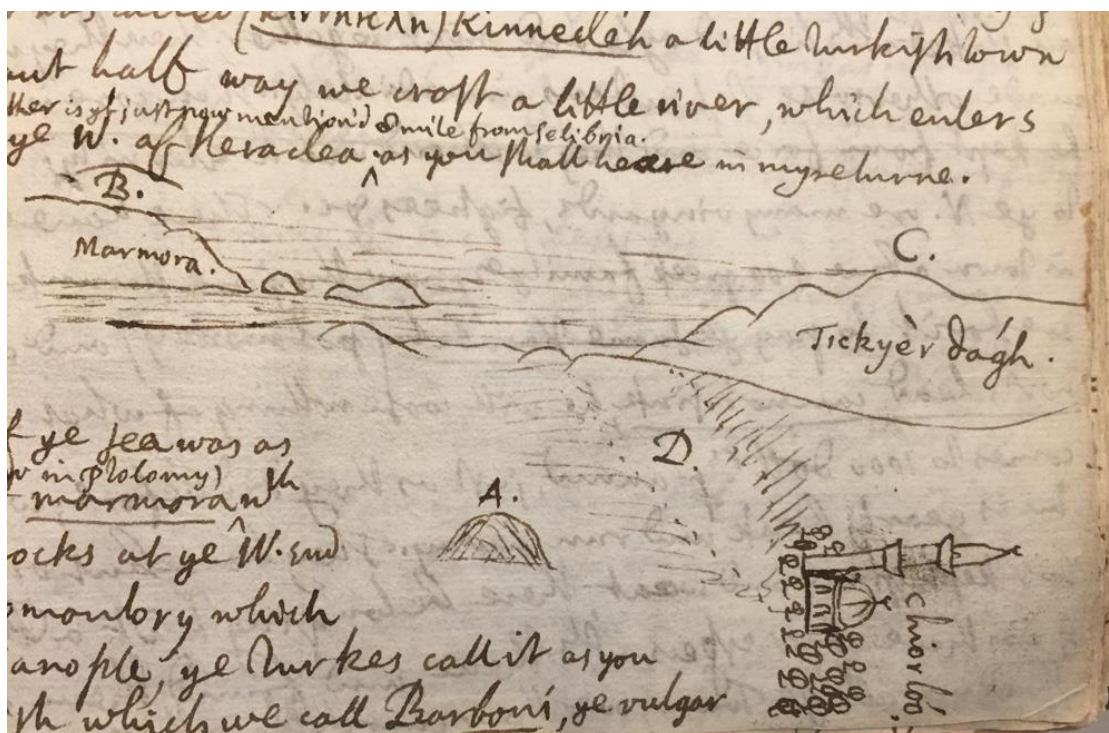 Kinnecleh a little Turkish town
half way we crost a little river, which enters
ther is yt just now mention'd 8 mile from Selibria.
ye W. of Heraclea ^ as you shall heare in my returne.
B.
Marmora.
C.
Tickyèr dágh.
D.
A.
ye sea was as
in Ptolomy)
marmora wth
ocks at ye ^ W. End
omontory which
anople, ye Turkes call it as you
which we call Barboni, ye vulgar
chiorloo